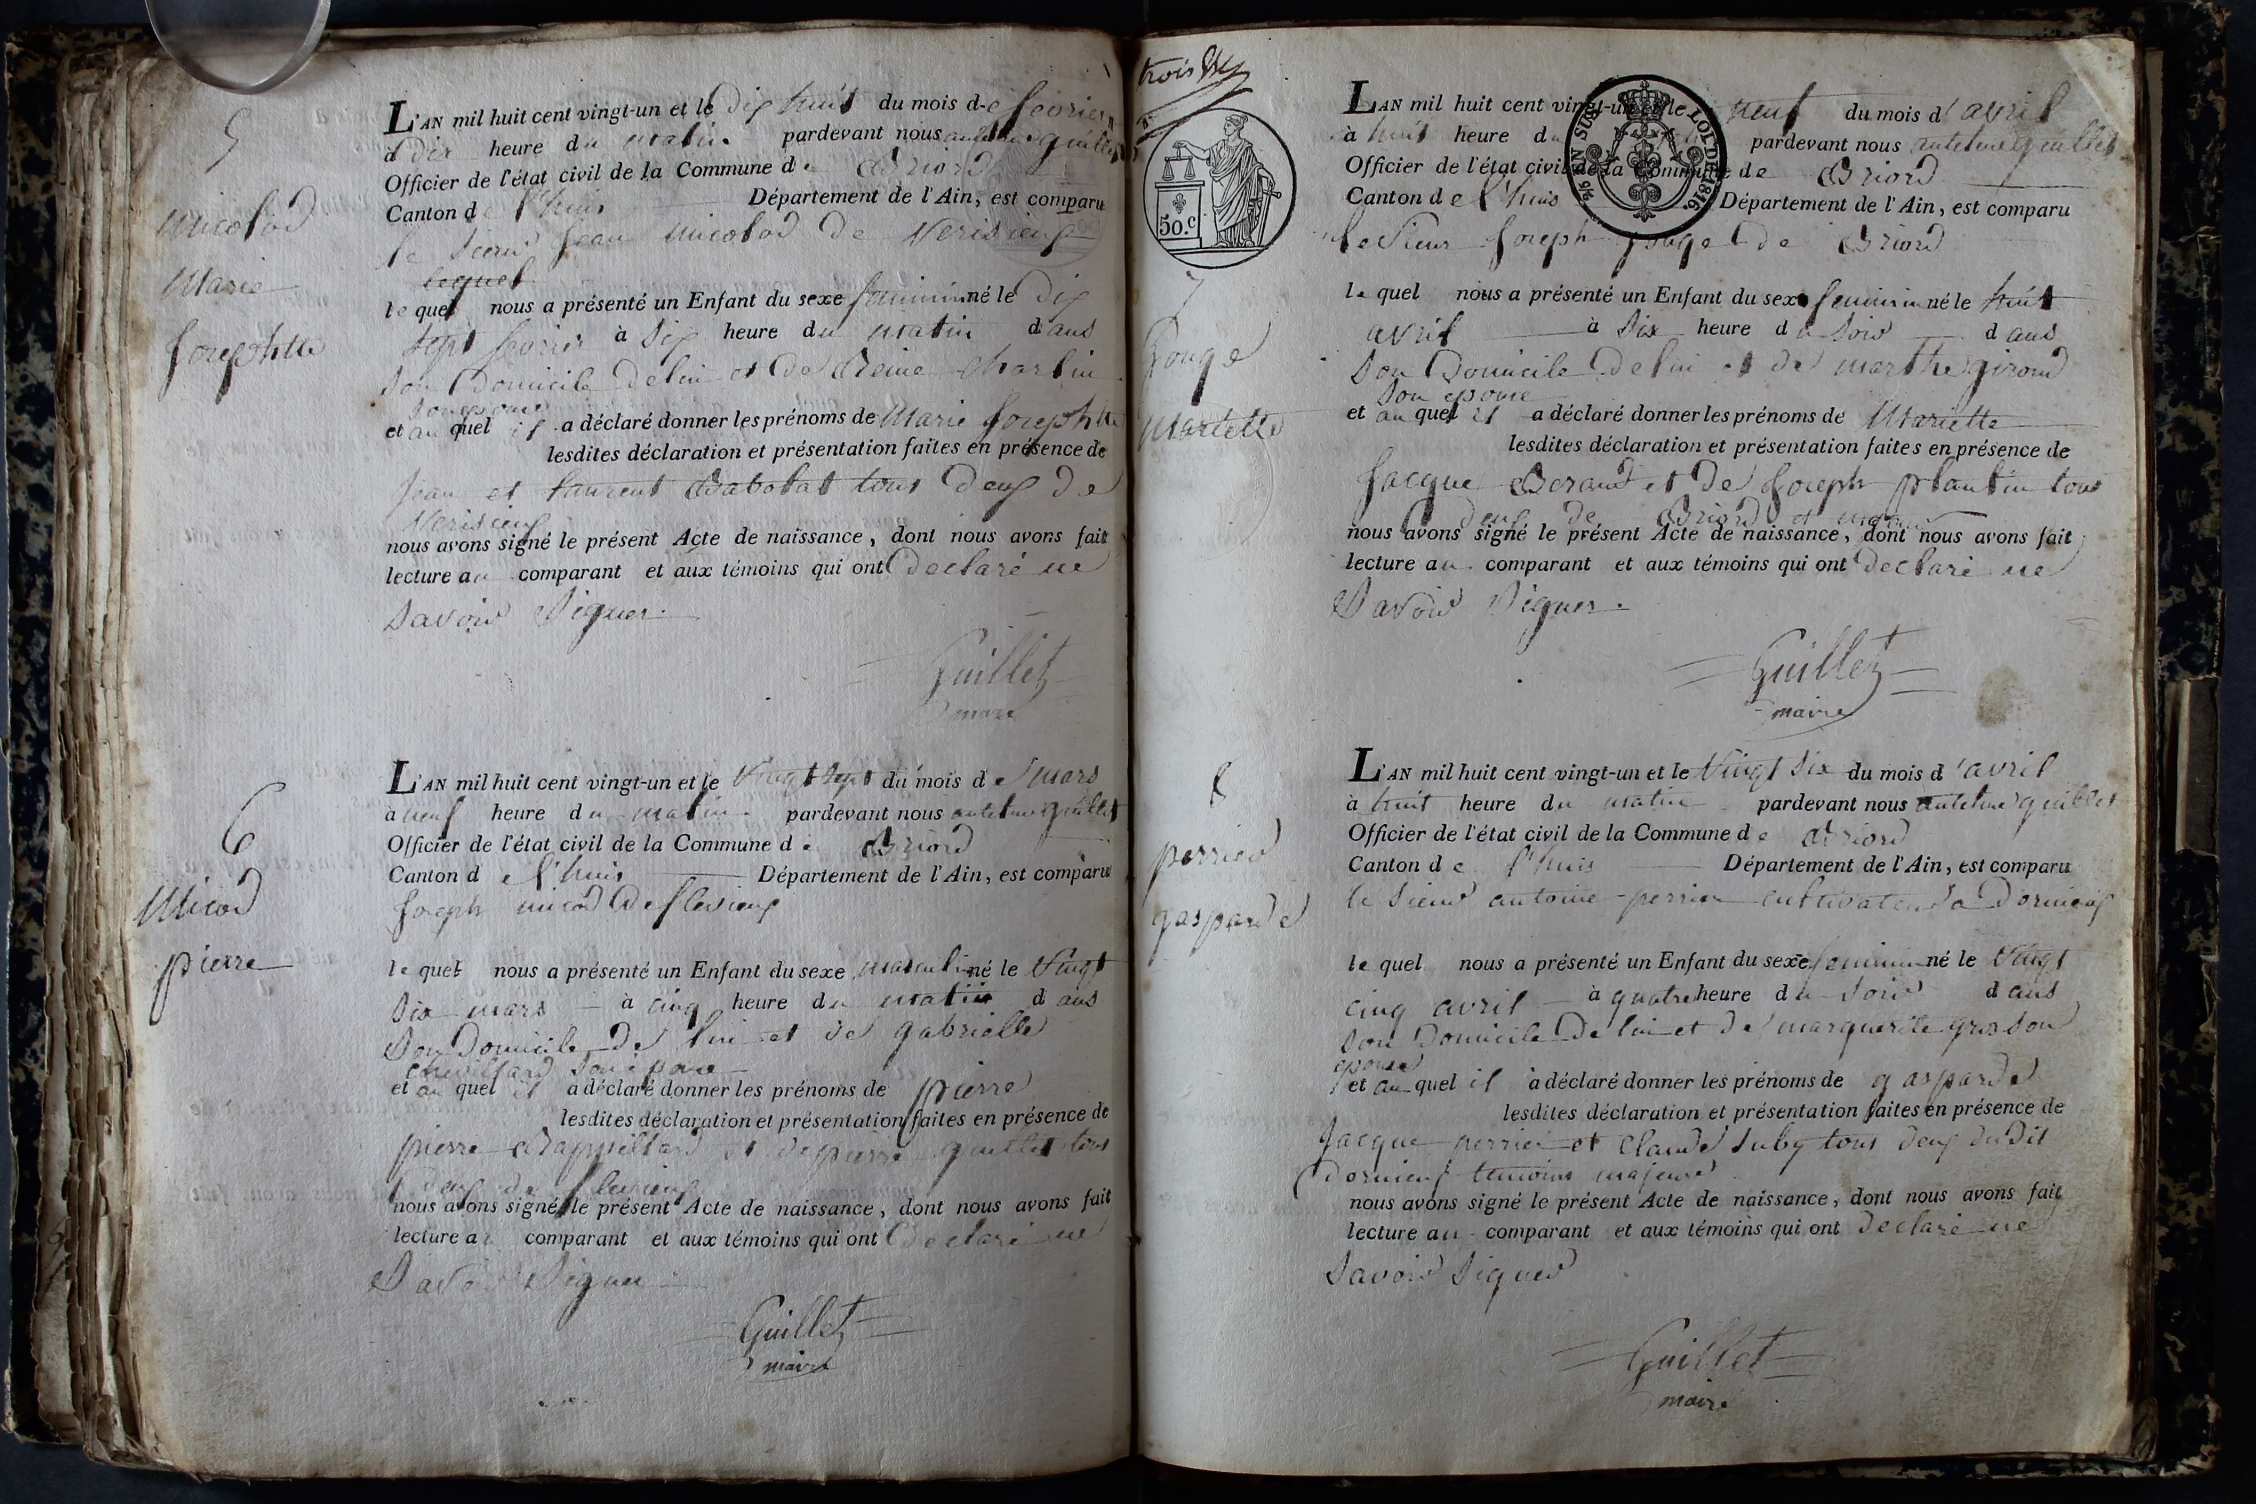 5
Micolod
Marie
Josephtte
L'AN mil huit cent vingt-un et le Dix huit du mois de fevrier
à dix heure du matin pardevant nous antelme guillet
Officier de l'état civil de la Commune de Briord
Canton de l'huis Département de l'Ain, est comparu
le Sieur Jean Micolod De Verisieux
lequel
le quel nous a présenté un Enfant du sexe feminin né le Dix
sept fevrier à Six heure du matin dans
Son Domicile De lui et De Reine Charlin
Son epouse
et au quel il a déclaré donner les prénoms de Marie Josephtte
lesdites déclaration et présentation faites en présence de
Jean et Laurent Babolat tous Deux De
Verisieux
nous avons signé le présent Acte de naissance, dont nous avons fait
lecture au comparant et aux témoins qui ont Declaré ne
Savoir Signer.
Guillet
maire
6
Micod
pierre
L'AN mil huit cent vingt-un et le Vingt Sept du mois de mars
à neuf heure du matin pardevant nous antelme guillet
Officier de l'état civil de la Commune de Briord
Canton de l'huis Département de l'Ain, est comparu
Joseph micod De flevieux
le quel nous a présenté un Enfant du sexe masculin né le Vingt
Six mars à cinq heure du matin dans
Son Domicile De lui et De gabrielle
chevillard Son epouse
et au quel il a déclaré donner les prénoms de pierre
lesdites déclaration et présentation faites en présence de
pierre et de pierre guillet tous
Deux De flevieux
nous avons signé le présent Acte de naissance, dont nous avons fait
lecture au comparant et aux témoins qui ont Declaré ne
Savoir Signer
Guillet
maire
trois
50.c
EN SUS LOI DE 1816.
7
Gouge
Mariette
L'AN mil huit cent vingt-un et le neuf du mois d'avril
à huit heure du pardevant nous antelme guillet
Officier de l'état civil de la Commune de Briord
Canton de l'huis Département de l'Ain, est comparu
le Sieur Joseph gouge de Briord
le quel nous a présenté un Enfant du sexe feminin né le huit
avril à Six heure du Soir dans
Son Domicile De lui et de marthe giroud
Son epouse
et au quel il a déclaré donner les prénoms de Mariette
lesdites déclaration et présentation faites en présence de
Jacque Beraud et De Joseph plantin tous
deux de Briord et majeur
nous avons signé le présent Acte de naissance, dont nous avons fait
lecture au comparant et aux témoins qui ont Declaré ne
Savoir Signer.
Guillet
maire
8
perrier
gasparde
L'AN mil huit cent vingt-un et le Vingt Six du mois d'avril
à huit heure du matin pardevant nous antelme guillet
Officier de l'état civil de la Commune de Briord
Canton de l'huis Département de l'Ain, est comparu
le Sieur antoine perrier cultivateur a Dornieux
le quel nous a présenté un Enfant du sexe feminin né le Vingt
cinq avril à quatre heure du Soir dans
Son Domicile De lui et De marguerite gros Son
epouse
et au quel il a déclaré donner les prénoms de gasparde
lesdites déclaration et présentation faites en présence de
Jacque perrier et Claude Juby tous deux dudit
Dornieux temoins majeurs
nous avons signé le présent Acte de naissance, dont nous avons fait
lecture au comparant et aux témoins qui ont Declaré ne
Savoir Signer
Guillet
maire